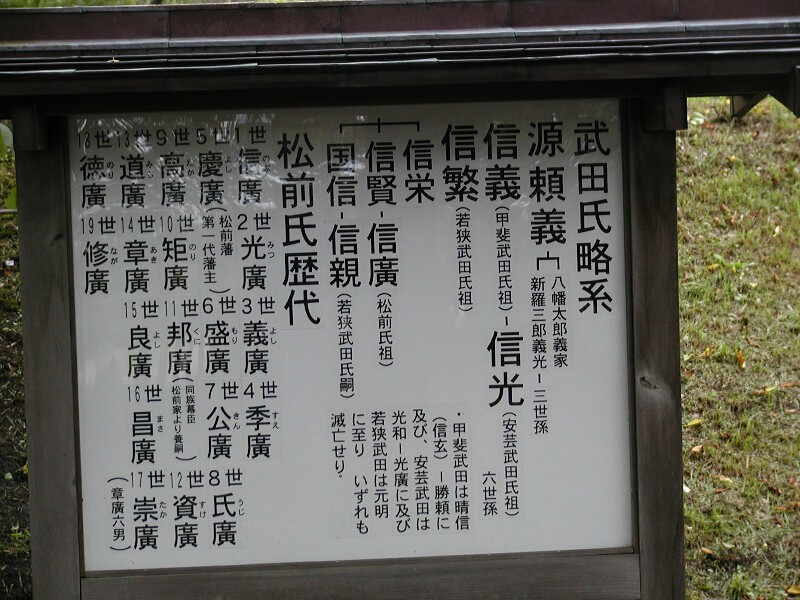 武田氏略系
源頼義
八幡太郎義家
新羅三郎義光ー三世孫
信義(甲斐武田氏祖)ー信光(安芸武田氏祖)
六世孫
信繁(若狭武田氏祖)
信栄
信賢-信廣(松前氏祖)
国信-信親(若狭武田氏嗣)
・甲斐武田は晴信
(信玄)ー勝頼に
及び、安芸武田は
光和ー光廣に及び
若狭武田は元明
に至り いずれも
滅亡せり。
松前氏歴代
1世 信廣 のぶ
2世 光廣 みつ
3世 義廣 よし
4世 季廣 すえ
5世 慶廣 よし
(松前藩
第一代藩主)
6世 盛廣 もり
7世 公廣 きん
8世 氏廣 うじ
9世 高廣 たか
10世 矩廣 のり
11世 邦廣 くに
(同族幕臣
松前家より養嗣)
12世 資廣 すけ
13世 道廣 みち
14世 章廣 あき
15世 良廣 よし
16世 昌廣 まさ
17世 崇廣 たか
(章廣六男)
18世 徳廣 のり
19世 修廣 なが